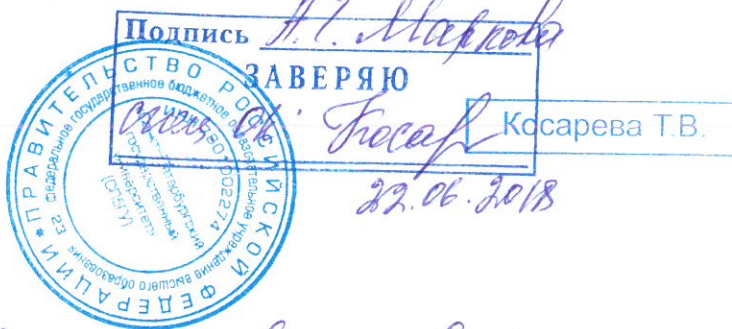 Подпись А.Г. Маркова
ЗАВЕРЯЮ
спец. ОК Косарева Т.В.
22.06.2018
ПРАВИТЕЛЬСТВО РОССИЙСКОЙ ФЕДЕРАЦИИ *
федеральное государственное бюджетное образовательное учреждение высшего образования 23
Санкт-Петербургский
государственный
университет»
(СПбГУ)